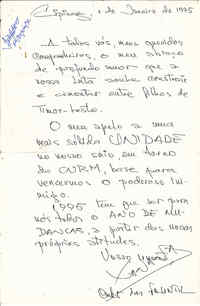 Cipinang, 1 de Janeiro de 1995
A todos vós, meus queridos
companheiros, o meu abraço
de profundo amor que a
nossa luta soube construir
e cimentar entre filhos de
Timor-Leste.
O meu apelo a uma
mais sólida UNIDADE
no nosso seio em torno
do CNRM, base para
vencermos o poderoso ini-
migo.
1995 tem que ser para
nós todos o ANO DE MU-
DANÇAS, a partir das nossas
próprias atitudes.
Vosso